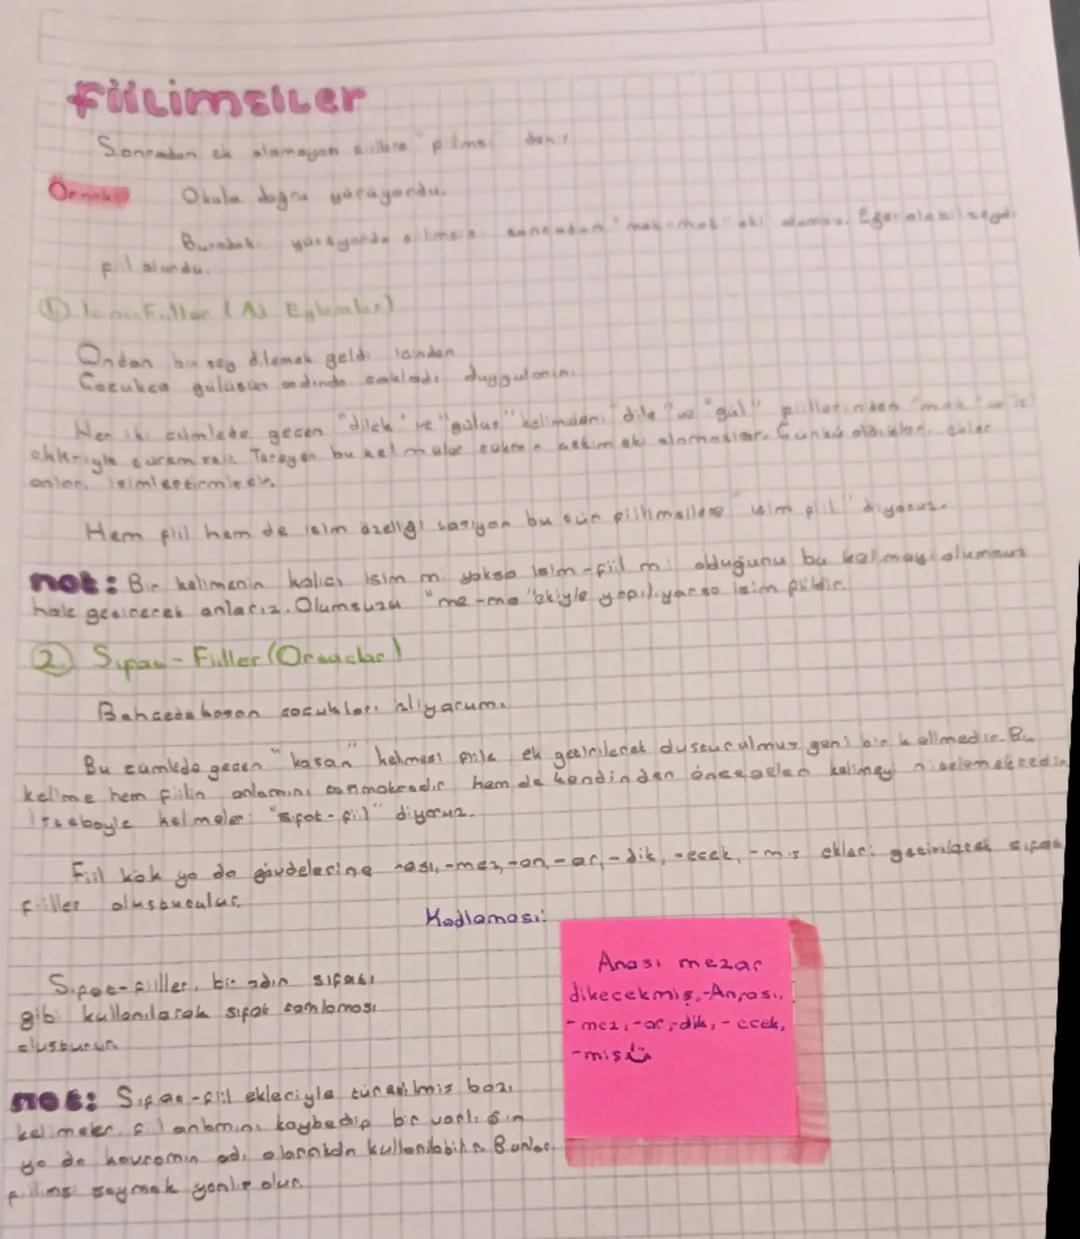 Fiilimsiler
Sonradan ek alamayan
Örnek
Okula doğru yürüyordu.
Buradaki "mek-mak" eki alamaz. Eğer alabilseydi
fiil olurdu.
① İsim-Fiiller (Ad Eylemler)
Ondan bir şey dilemek geldi içinden
Çocukça gülüşün ardında sakladı
Her iki cümlede geçen "dilek" ve "gülüş" kelimeleri "dile" ve "gül" fiillerinden
bu kelimeler Çünkü aldıkları ekler
onları isimleştirmiştir.
Hem fiil hem de isim özelliği taşıyan bu tür "isim fiil" diyoruz.
not: Bir kelimenin kalıcı isim mi yoksa isim-fiil mi olduğunu bu kelimeyi olumsuz
hale getirerek anlarız. Olumsuzu "me-ma" ekiyle yapılıyorsa isim fiildir.
② Sıfat-Fiiller (Ortaçlar)
Bahçede koşan çocukları izliyorum.
Bu cümlede geçen "koşan" kelmesi fiile ek getirilerek yeni bir kelimedir. Bu
kelime hem fiilin anlamını taşımaktadır hem de kendinden önce gelen kelimeyi
İşte böyle kelmeler "sıfat-fiil" diyoruz.
Fiil kök ya da gövdelerine -ası, -mez, -an, -ar, -dik, -ecek, -mış ekleri getirilerek sıfat
fiiller oluşturulur.
Kodlaması:
Anası mezar
dikecekmiş, -An, ası,
-mez, -ar, -dik, -ecek,
-miş
Sıfat-fiiller, bir adın sıfatı
gibi kullanılarak sıfat tamlaması
oluşturur.
not: Sıfat-fiil ekleriyle türetilmiş bazı
kelimeler, fiil anlamını kaybedip bir varlığın
ya da kavramın adı olarak kullanılabilir. Bunları
saymak yanlış olur.